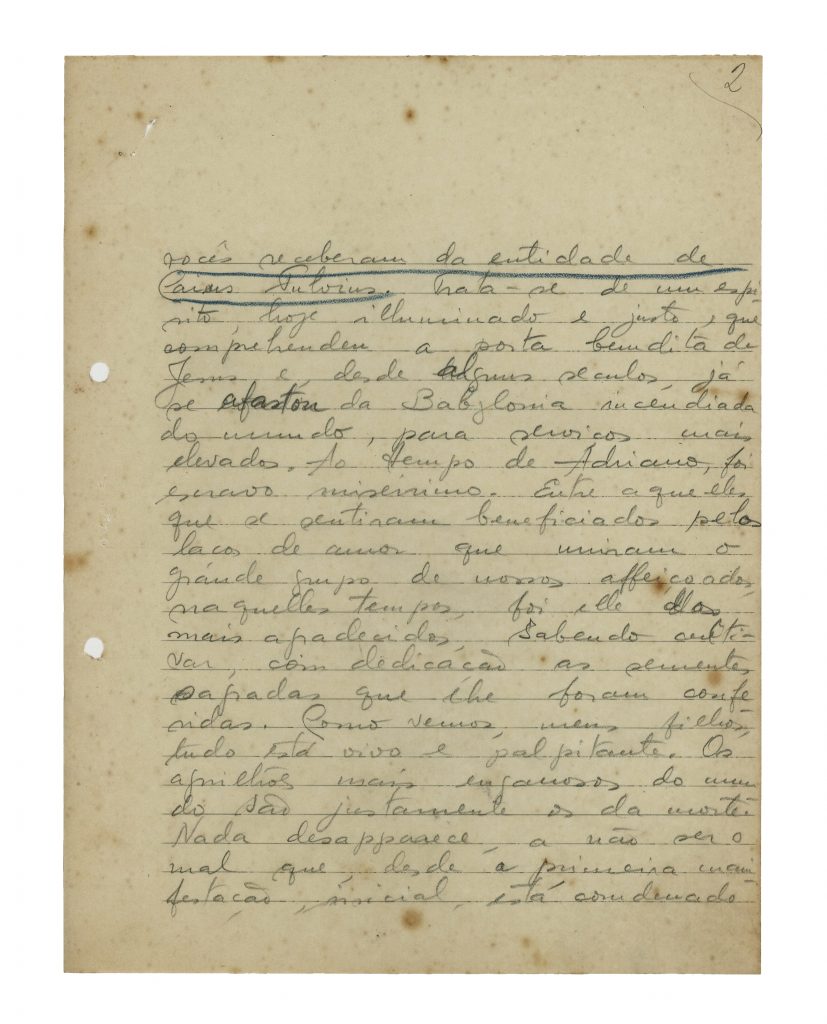 2
vocês receberam da entidade de
Caius Fulvius. Trata-se de um espi-
rito hoje illuminado e justo, que
comprehendeu a porta bemdita de
Jesus e, desde alguns seculos, já
se afastou da Babylonia incendiada
do mundo, para serviços mais
elevados. Ao tempo de Adriano, foi
escravo miserrimo. Entre aquelles
que se sentiram beneficiados pelos
laços de amor que uniram o
grande grupo de nossos affeiçoados,
naquelles tempos, foi elle dos
mais agradecidos, sabendo culti-
var, com dedicação as sementes
sagradas que lhe foram confe-
ridas. Como vemos, meus filhos,
tudo está vivo e palpitante. Os
aguilhões mais enganosos do mun-
do são justamente os da morte.
Nada desapparece, a não ser o
mal que, desde a primeira mani-
festação, inicial, está condenado